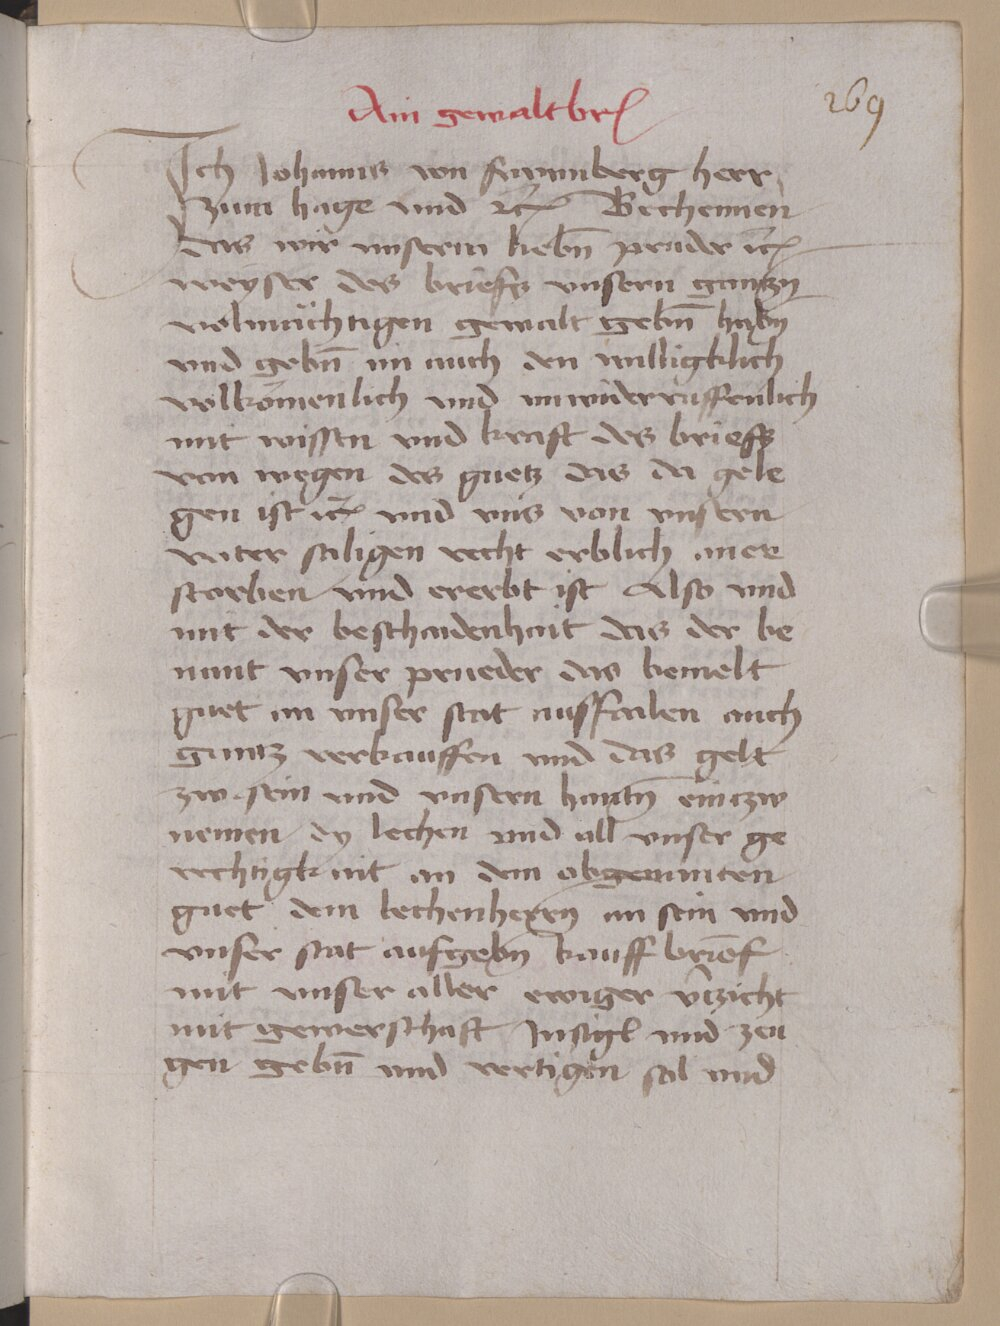 Ain gewaltbrƒ
269
Ich Johanns von frawnberg herr
Zum hage und ꝛc Bechennen
das wir unserm liebn̄ prueder ꝛc
weyser des briefs unsern gantzn
volmächtigen gewalt gebn̄ habn
und gebn̄ im auch den willigklich
volkōmenlich und unwiderruffenlich
mit wissen und kraft des briefs
von wegen des guetz das da gele
gen ist ꝛc und uns von unsern
vater säligen recht erblich aner
storben und ererbt ist Also und
mit der beschaidenhait das der be
nant unser prueder das bemelt
guet an unser stat ausfailen auch
gantz verkauffen und das gelt
zw sein und unsern hantn̄ eintzw
nemen dy lechen und all unser ge
rechtigkait an dem obgenanten
guet dem lechenherrn an sein und
unser stat aufgebn̄ kauff brief
mit unser aller ewiger v̄tzicht
mit gewerschaft Insigl und zeu
gen gebn̄ und vertigen sol und